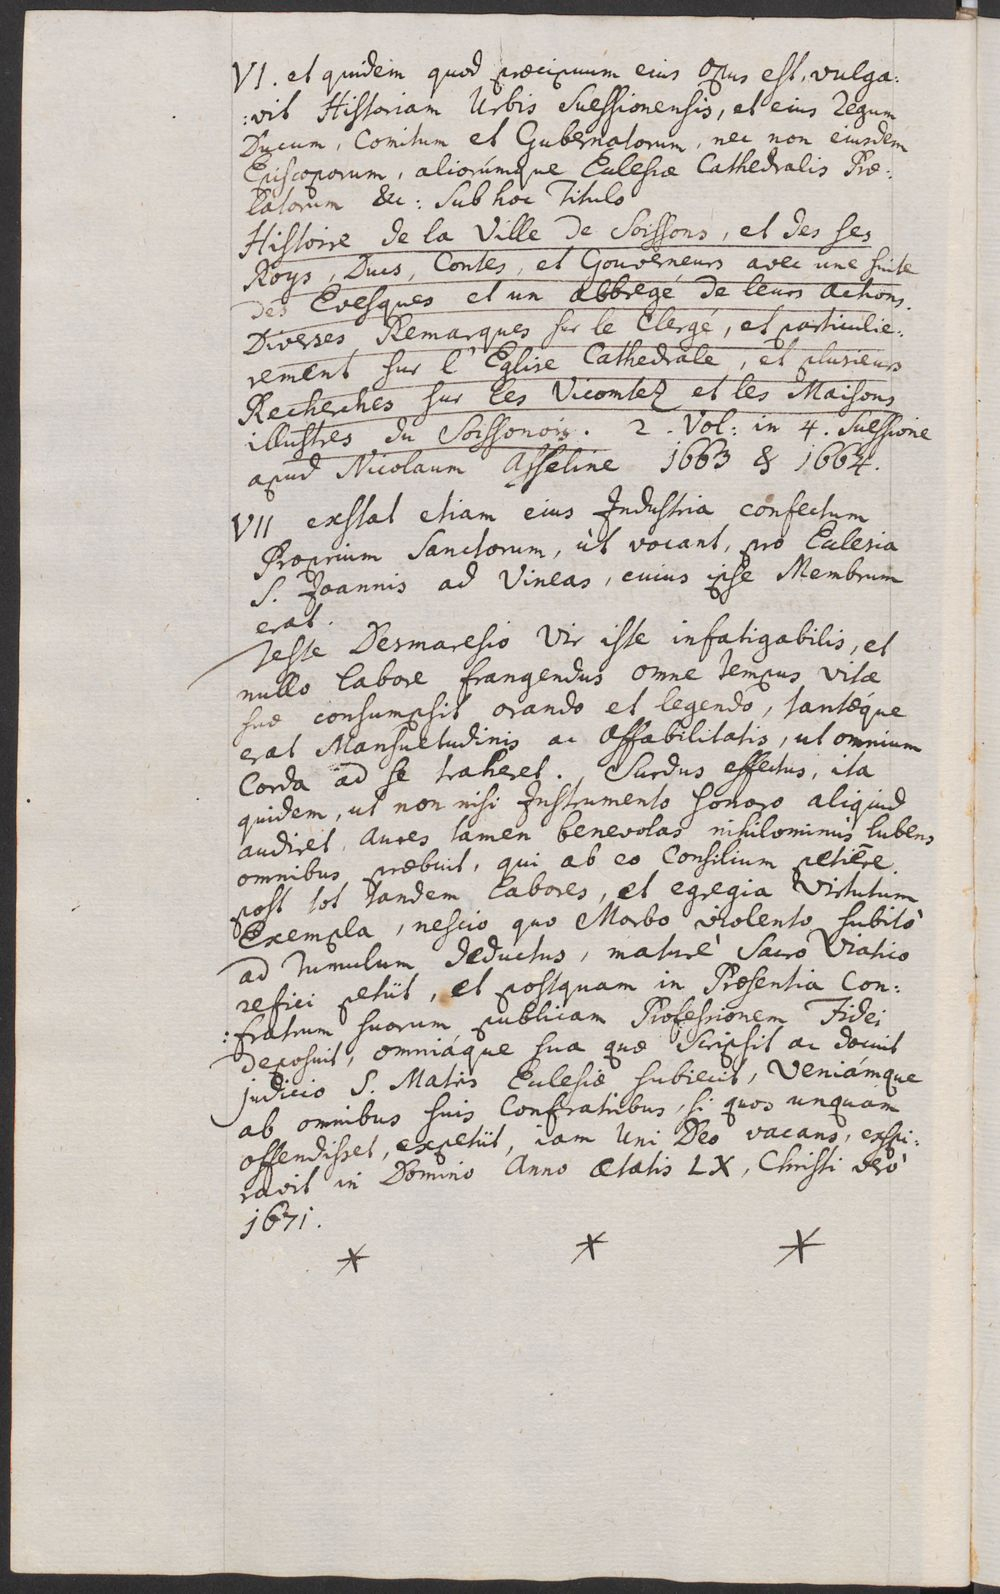 VI. et quidem quod præcipuum eius opus est, vulga:
:vit Historiam Urbis Suessionensis, et eius Regum
Ducum, Comitum et Gubernatorum, nec non eiusdem
Episcoporum, aliorúmque Eclesiæ Cathedralis Præ:
latorum &c: sub hoc Titulo
Histoire de la Ville de Soissons, et des ses
Roys, Ducs, Contes, et Gouverneurs avec une suite
des Evesques et un abbregé de leurs actions.
Diverses Remarques sur le Clergé, et particulie:
rement sur l'Eglise Cathedrale, et plusieurs
Recherches sur les Vicomtez et les Maisons
illustres du Soissonois. 2. Vol: in 4. Suessione
apud Nicolaum Asseline 1663 & 1664.
VII exstat etiam eius Industria confectum
Proprium Sanctorum, ùt vocant, pro Eclesia
S. Joannis ad Vineas, cuius ipse Membrum
erat.
Teste Desmaresio Vir iste infatigabilis, et
nullo labore frangendus omne tempus vitæ
suæ consumpsit orando et legendo, tantǽque
erat Mansuetudinis ac Affabilitatis, ut omnium
Corda ad se traheret. Surdus effectus, ita
quidem, ut non nisi Instrumento sonoro aliquid
audiret, aures tamen benevolas nihilominus lubens
omnibus præbuit, qui ab eo Consilium petiêre.
post tot tandem labores, et egregia Virtutum
Exempla, nescio quo Morbo violento subitò
ad Tumulum deductus, maturè Sacro Viatico
refici petiit, et postquam in Præsentia Con:
:fratrum suorum publicam Professionem Fidei
deposuit, omniáque sua quæ scripsit ac docuit
judicio S. Matris Eclesiæ subiecit, Veniámque
ab omnibus suis Confratribus, si quos unquam
offendisset, expetiit, iam Uni Deo vacans, exspi:
ravit in Domino Anno ætatis LX, Christi verò
1671.
* * *